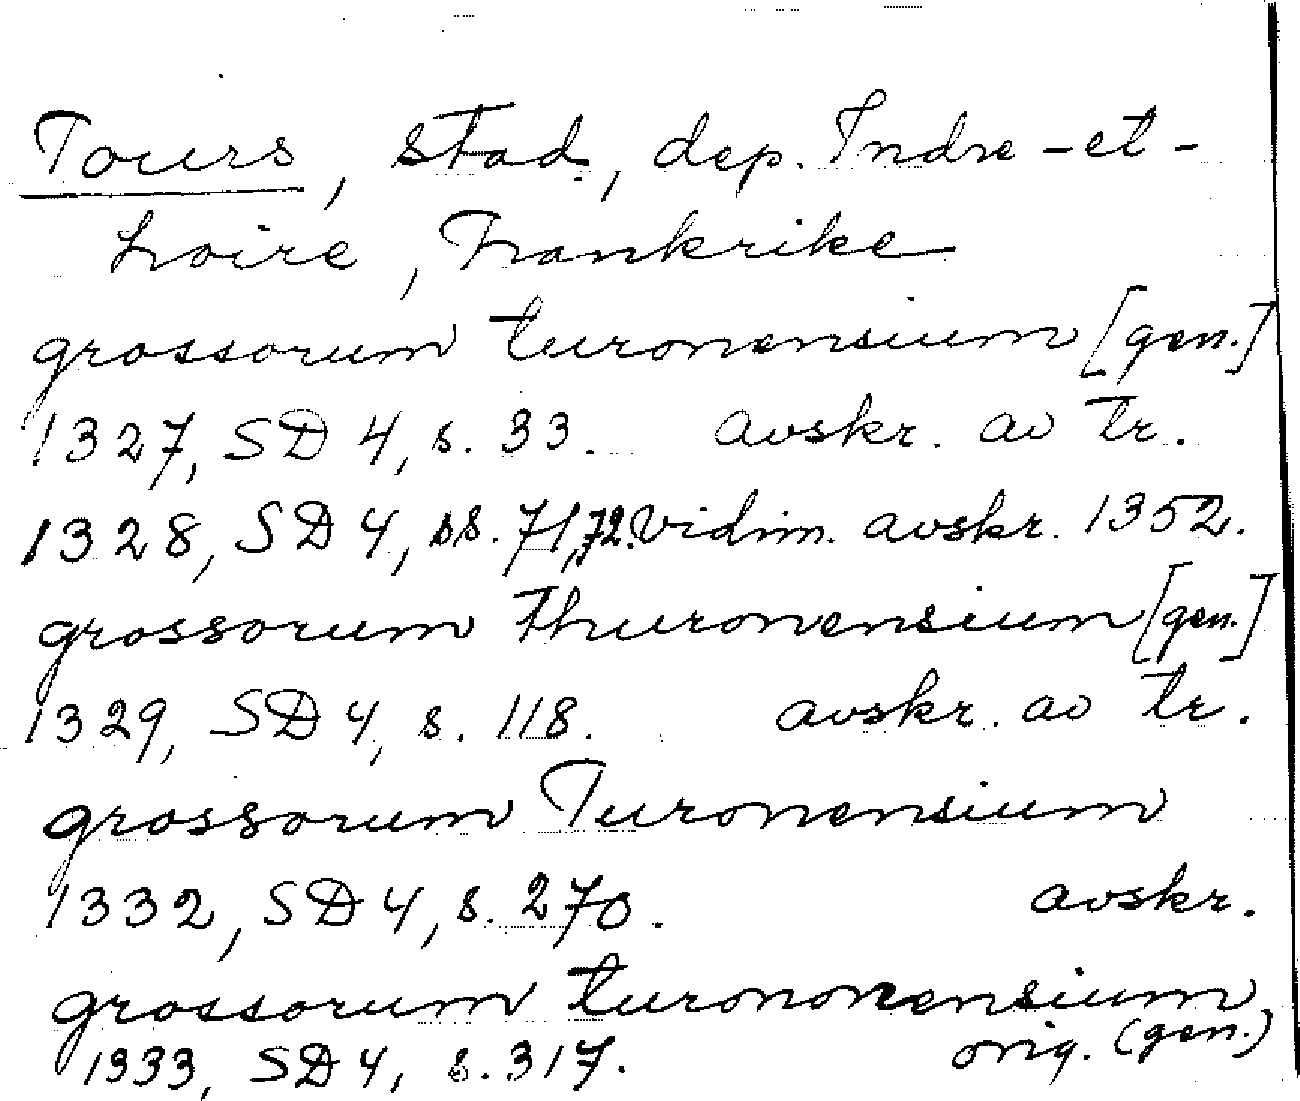 Tours, stad, dep. Indre-et-
Loire, Frankrike
grossorum turonensium [gen.]
1327, SD 4, s. 33. avskr. av tr.
1328, SD 4, ss. 71, 72. Vidim. avskr. 1352.
grossorum thuronensium [gen.]
1329, SD 4, s. 118. avskr. av tr.
grossorum Turonensium
1332, SD 4, s. 270. avskr.
grossorum turononensium
1333, SD 4, s. 317. orig. (gen.)